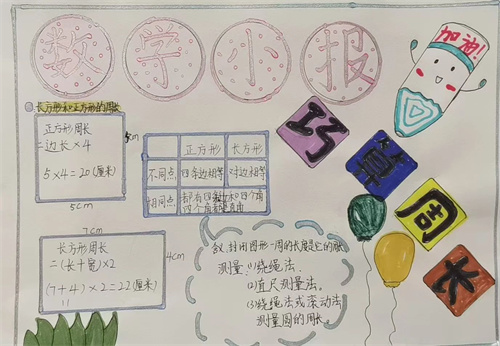 数学小报
加油!
巧算周长
长方形和正方形的周长
正方形周长
=边长×4
5×4=20(厘米)
5cm
5cm
正方形 长方形
不同点 四条边相等 对边相等
相同点 都有四条边和四个角
四个角都是直角
7cm
4cm
长方形周长
=(长+宽)×2
(7+4)×2=22(厘米)
封闭图形一周的长度是它的周长
测量:(1)绕绳法.
(2)直尺测量法.
(3)绕绳法或滚动法
测量圆的周长.